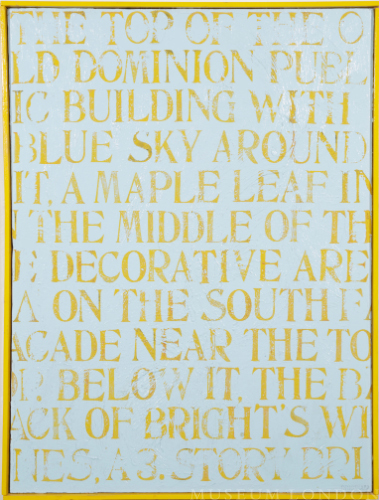 THE TOP OF THE O
LD DOMINION PUBL
IC BUILDING WITH
BLUE SKY AROUND
IT, A MAPLE LEAF IN
N THE MIDDLE OF TH
E DECORATIVE ARE
A ON THE SOUTH FA
ACADE NEAR THE TO
OP. BELOW IT, THE BA
ACK OF BRIGHT'S WI
NES, A 3. STORY BRI
MUSEUM LONDON